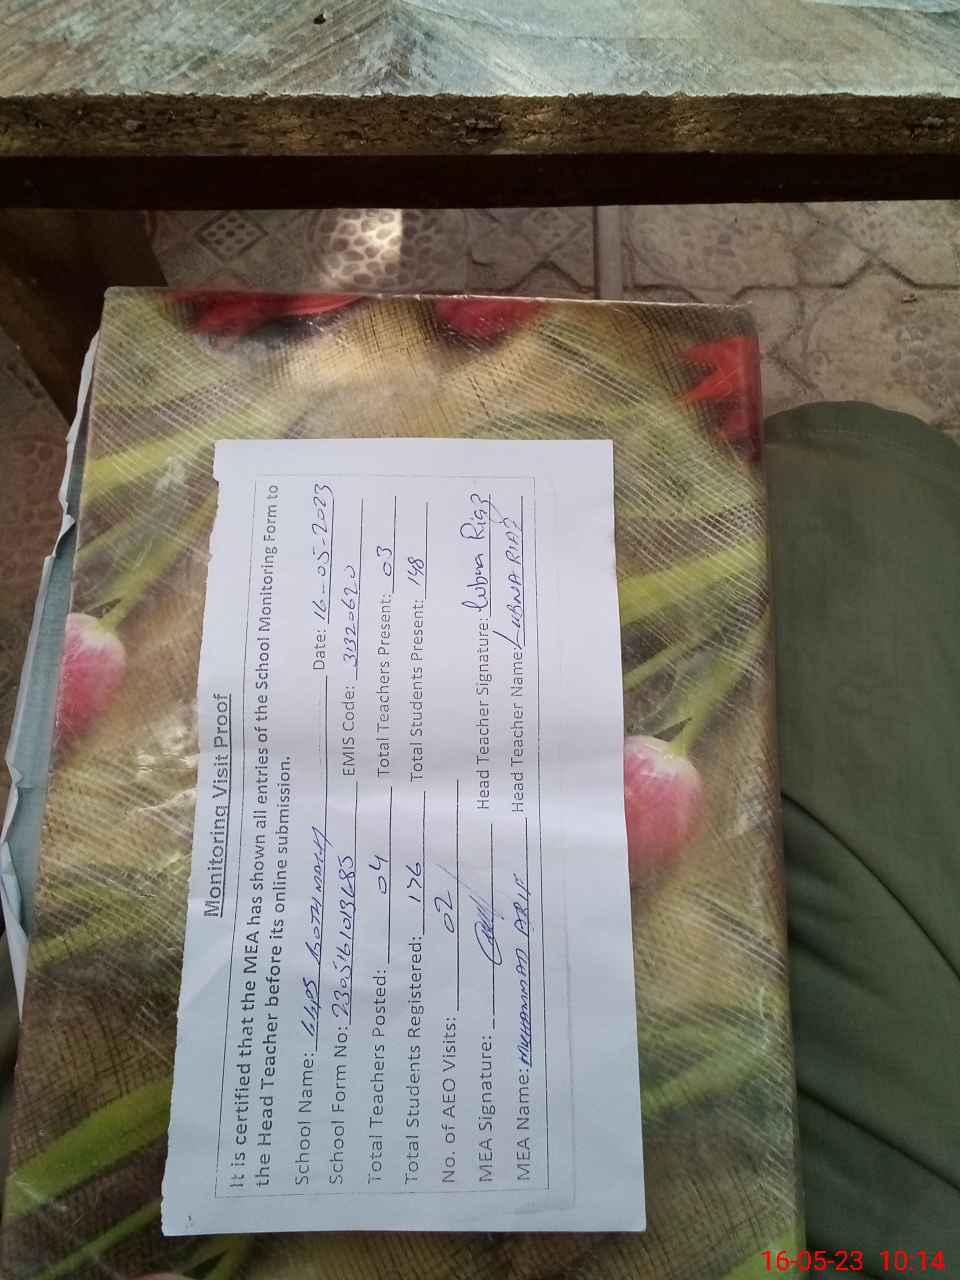 Monitoring Visit Proof
It is certified that the MEA has shown all entries of the School Monitoring Form to
the Head Teacher before its online submission.
School Name: GGPS Date: 16-05-2023
School Form No: EMIS Code: 31320620
Total Teachers Posted: 04 Total Teachers Present: 03
Total Students Registered: 176 Total Students Present: 148
No. of AEO Visits: 02
MEA Signature: Head Teacher Signature: Lubna Riaz
MEA Name: MUHAMMAD ARIF Head Teacher Name: LUBNA RIAZ
16-05-23 10:14